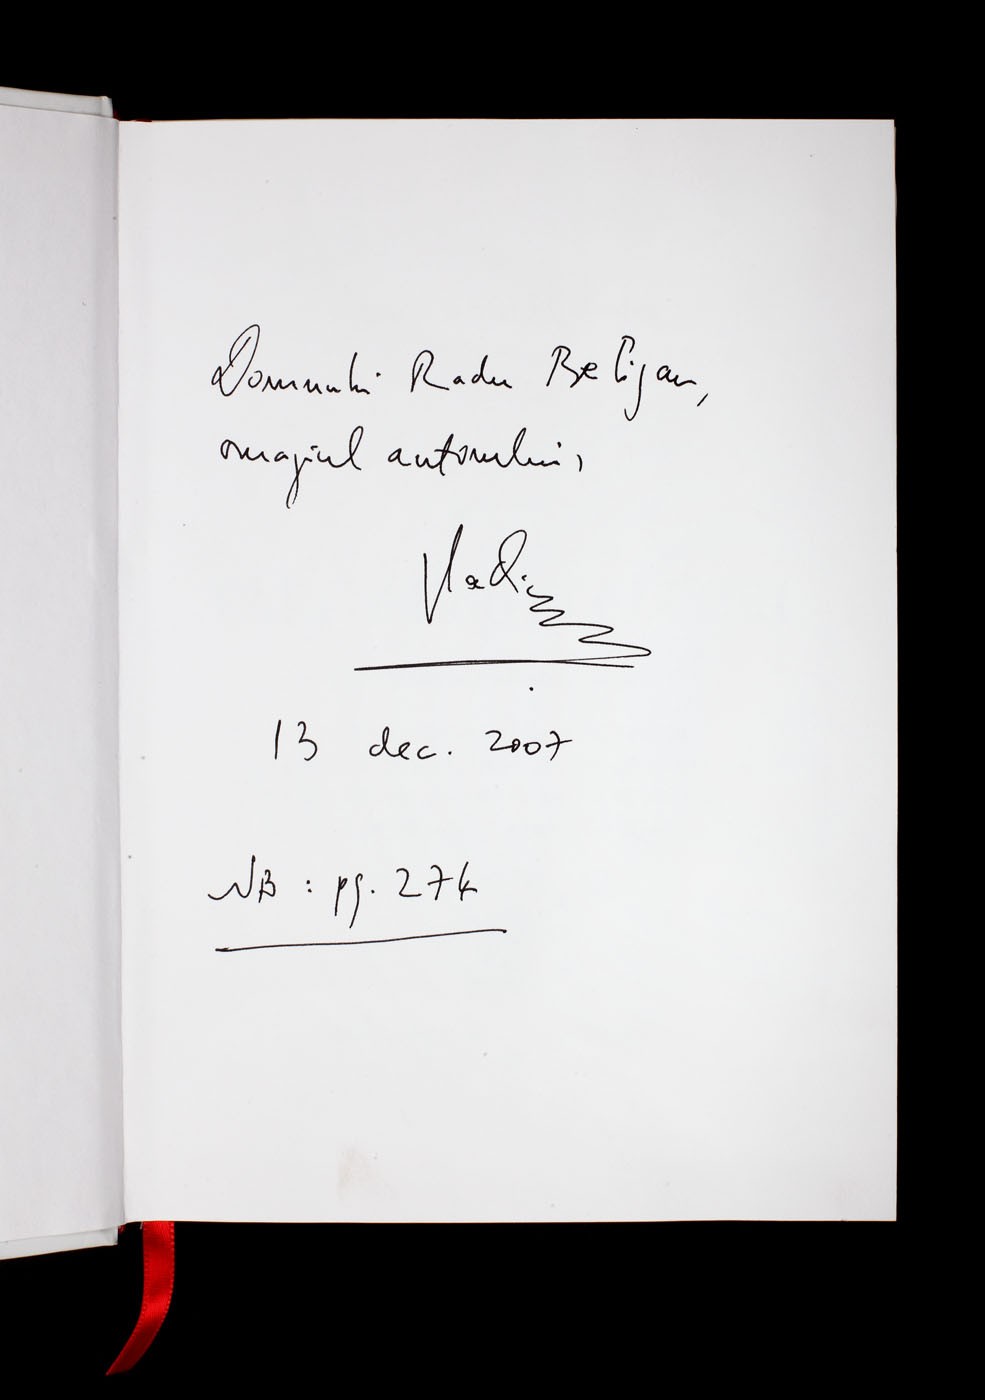 Domnului Radu Beligan,
omagiul autorului,
13 dec. 2007
NB : pg. 274